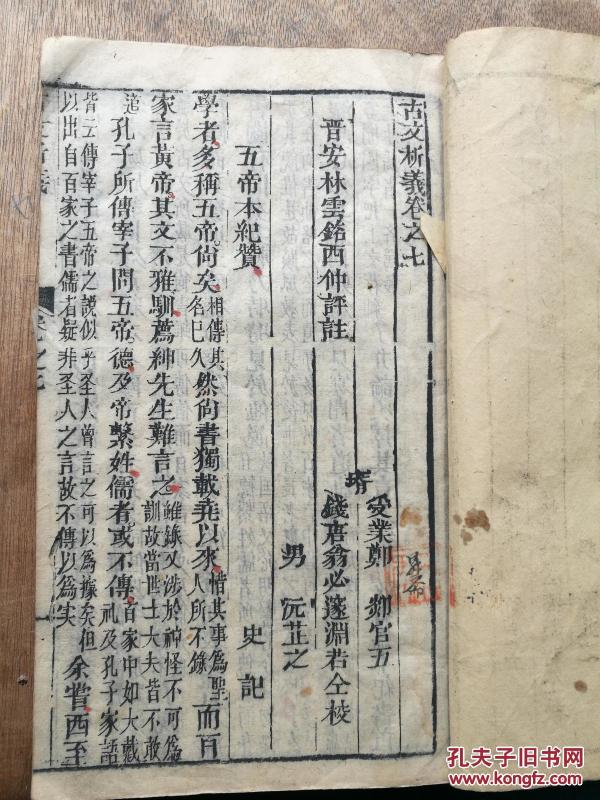 古文析義卷之七
晉安林雲銘西仲評註
受業鄭 郰官五
壻錢唐翁必𨗉淵若仝校
男 沅芷之
五帝本紀贊 史記
學者多稱五帝尙矣相傳其名已久然尙書獨載堯以來惜其事爲聖人所不錄而百
家言黃帝其文不雅馴薦紳先生難言之雖錄又涉於神怪不可爲訓故當世士大夫皆不敢
道孔子所傳宰予問五帝德及帝繫姓儒者或不傳百家中如大戴禮及孔子家語
皆云傳宰予五帝之說似乎聖人曾言之可以爲據矣但以出自百家之書儒者疑非聖人之言故不傳以爲實余嘗西至
孔夫子旧书网
www.kongfz.com